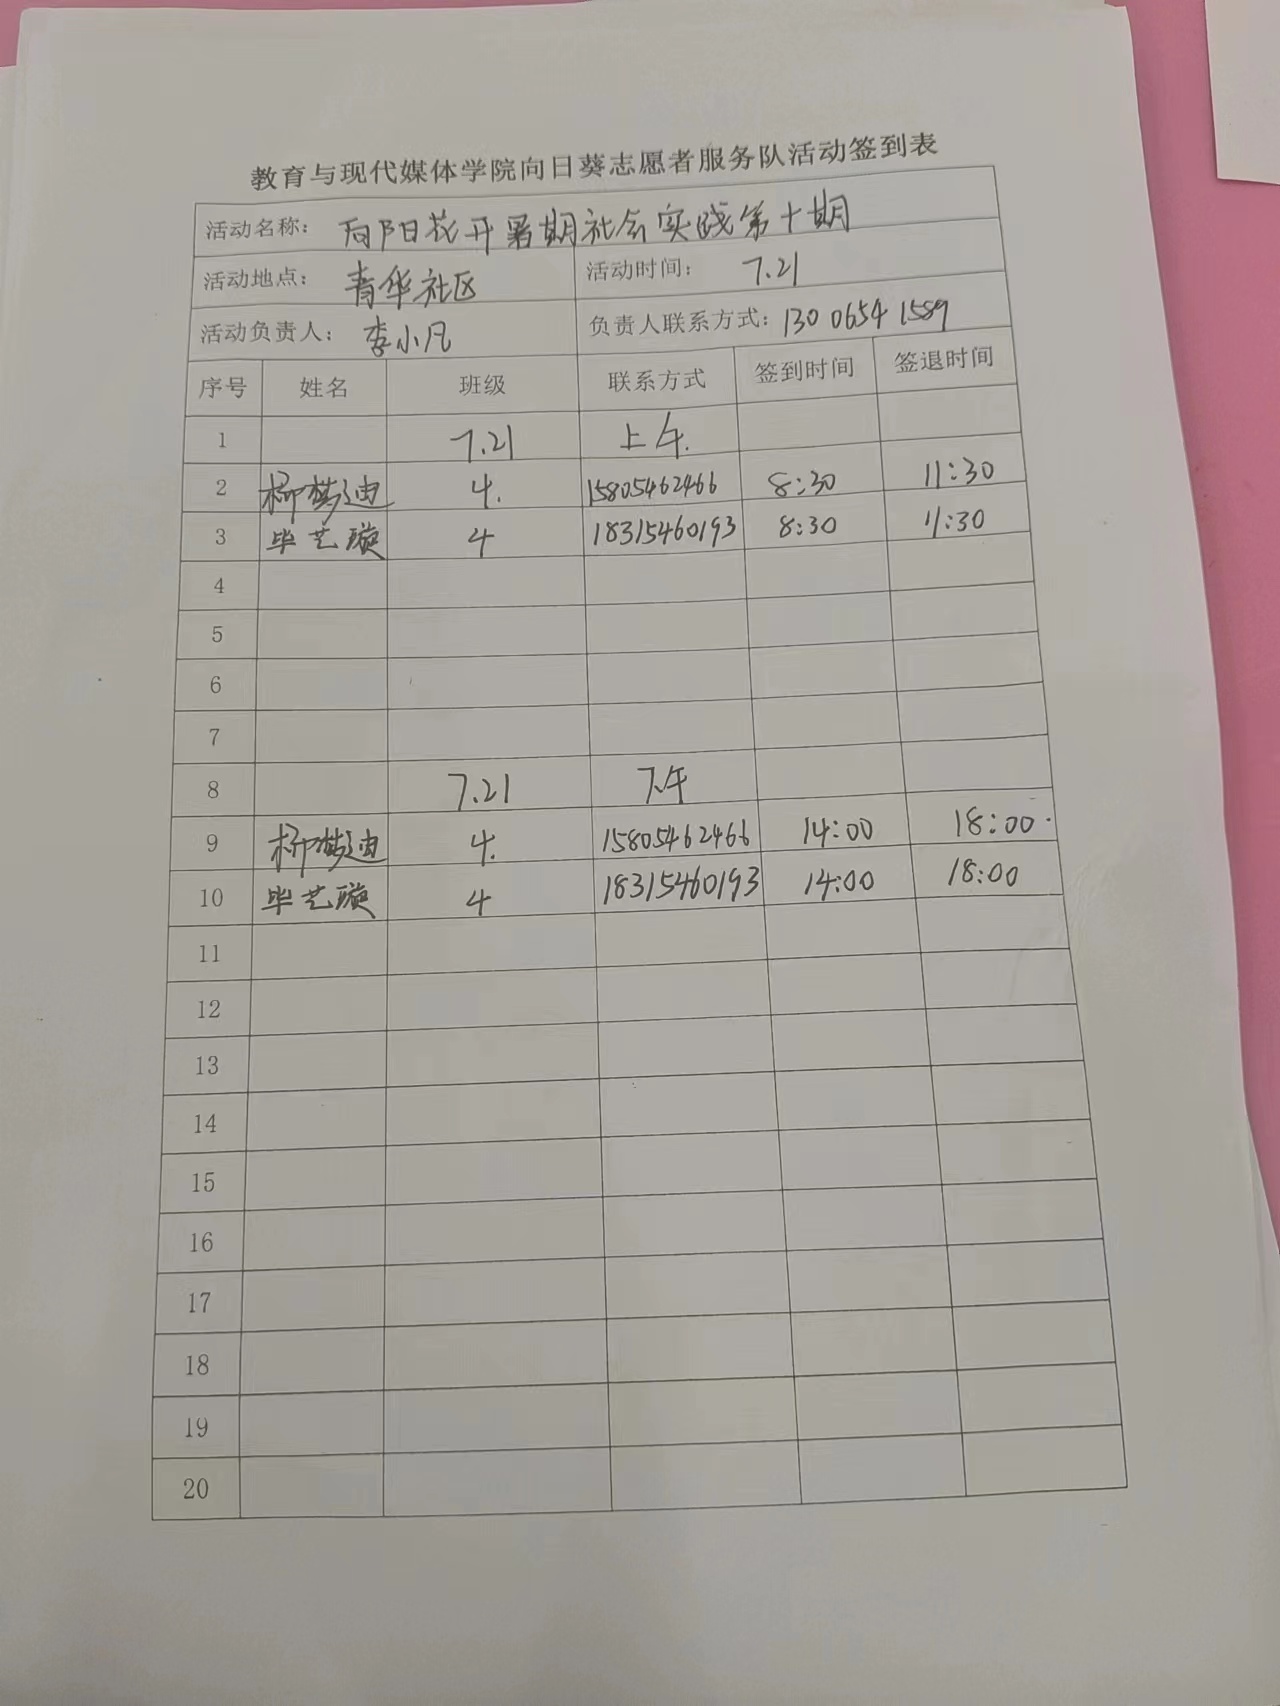 教育与现代媒体学院向日葵志愿者服务队活动签到表
活动名称: 向阳花开暑期社会实践第十期
活动地点: 青华社区 活动时间: 7.21
活动负责人: 李小凡 负责人联系方式: 130 0654 1589
序号 姓名 班级 联系方式 签到时间 签退时间
1 7.21 上午.
2 柳梦迪 4. 15805462466 8:30 11:30
3 毕艺璇 4 18315460193 8:30 11:30
4
5
6
7
8 7.21 下午
9 柳梦迪 4. 15805462466 14:00 18:00.
10 毕艺璇 4 18315460193 14:00 18:00
11
12
13
14
15
16
17
18
19
20